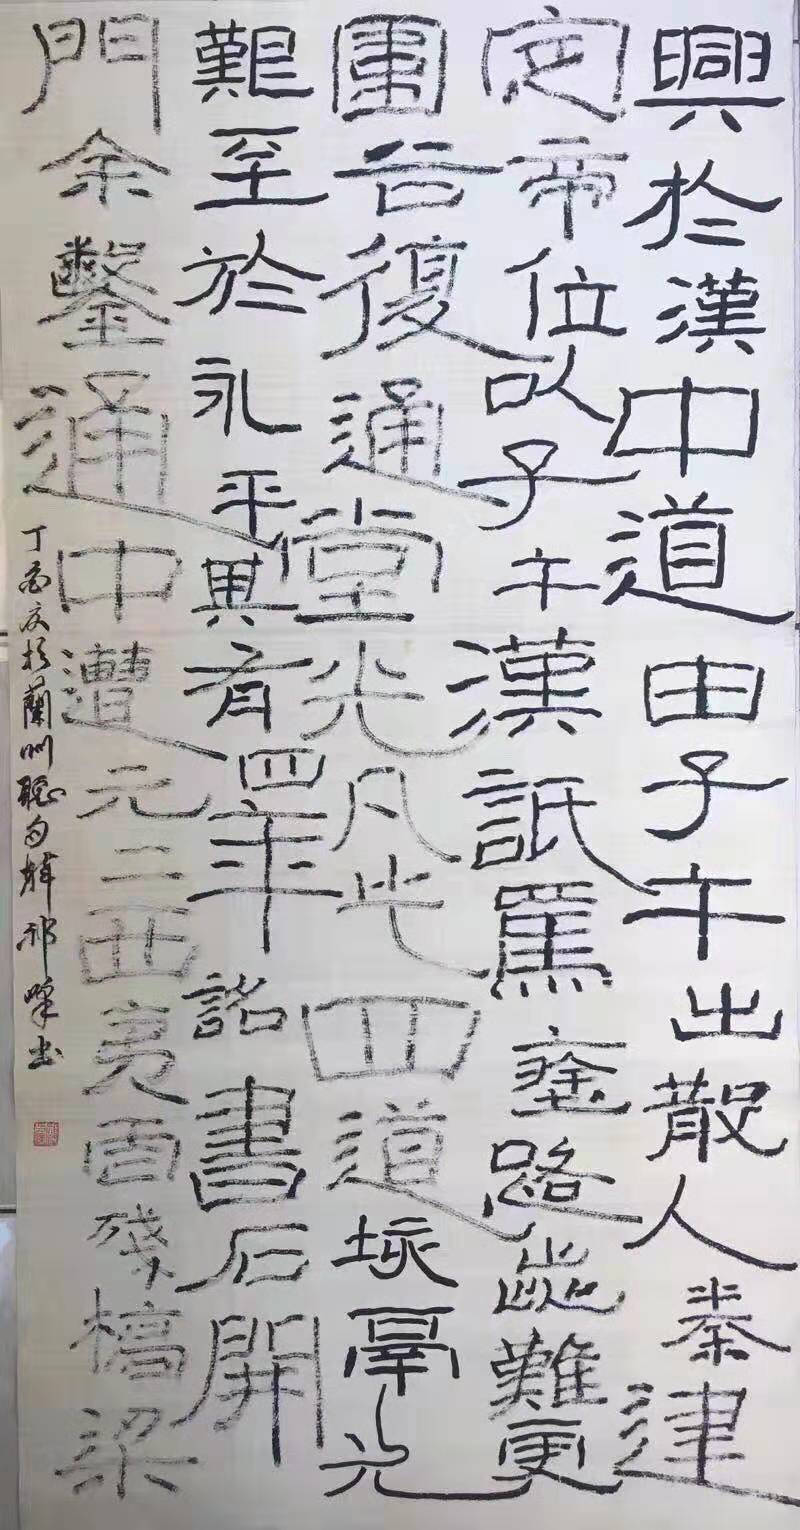 興於漢中道由子午出散入秦建
定帝位以子午漢詆焉塗路歰難更
圍谷復通堂光凡此四道垓鬲尤
艱至於永平其有四年詔書石開
門余鑿通中遭元二西夷虐殘橋梁
丁酉夏於蘭州聽雨軒祁书